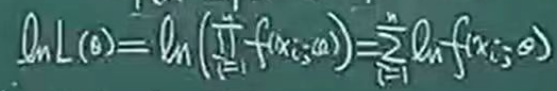 ln L(θ) = ln(∏_{i=1}^{n} f(x_i; θ)) = ∑_{i=1}^{n} ln f(x_i; θ)